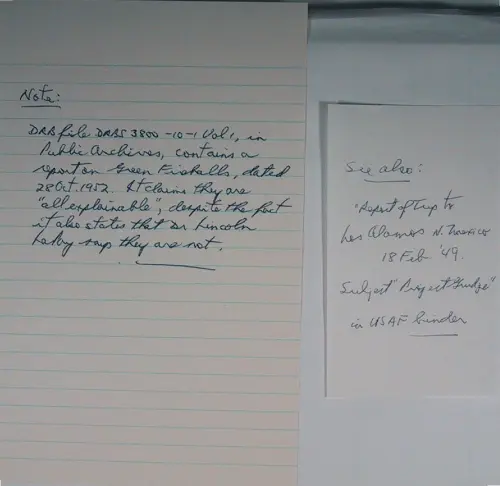 Note:
DRB file DRBS 3800-10-1 Vol 1, in
Public Archives, contains a
report on Green Fireballs, dated
28 Oct. 1952. It claims they are
"all explainable", despite the fact
it also states that Dr. Lincoln
LaPaz says they are not.
See also:
"Report of Trip to
Los Alamos N. Mexico
18 Feb '49.
Subject "Project Grudge"
in USAF binder